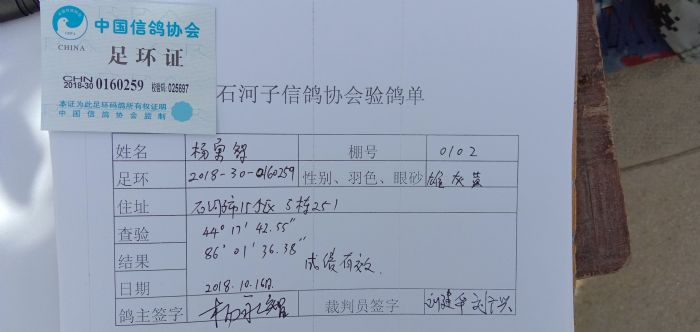 中国信鸽协会
CHINA
足环证
CHN
2018-30 0160259 校验码:025697
本证为此足环码鸽所有权证明
中国信鸽协会监制
石河子信鸽协会验鸽单
姓名 杨 智 棚号 0102
足环 2018-30-0160259 性别、羽色、眼砂 雄 灰 黄
住址 石河子市15小区 5栋251
查验 44° 17' 42.55"
结果 86° 01' 36.38" 成绩有效
日期 2018.10.16日
鸽主签字 杨 智 裁判员签字